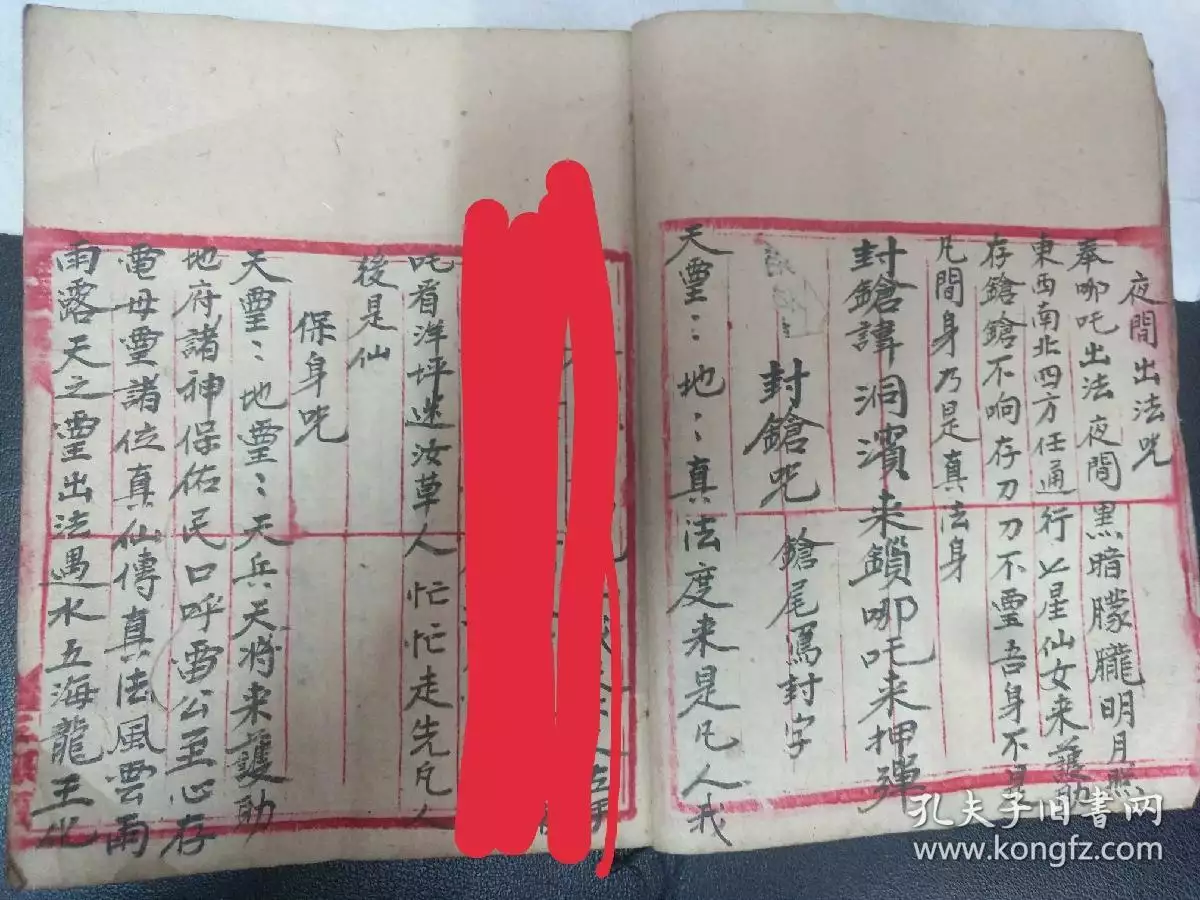 夜間出法咒
奉哪吒出法夜間黑暗朦朧明月照
東西南北四方任通行七星仙女来護助
存鎗鎗不响存刀刀不靈吾身不是
凡間身乃是真法身
封鎗諱洞濱来鎖哪吒来押彈
封鎗咒 鎗尾寫封字
天靈:地:真法度来是凡人我
吒看洋坪迷汝草人忙忙走先凡人
後是仙
保身咒
天靈:地靈:天兵天将来護助
地府諸神保佑民口呼雷公至心存
電母靈諸位真仙傳真法風雲雨
雨露天之靈出法遇水五海龍王化
孔夫子旧书网
www.kongfz.com